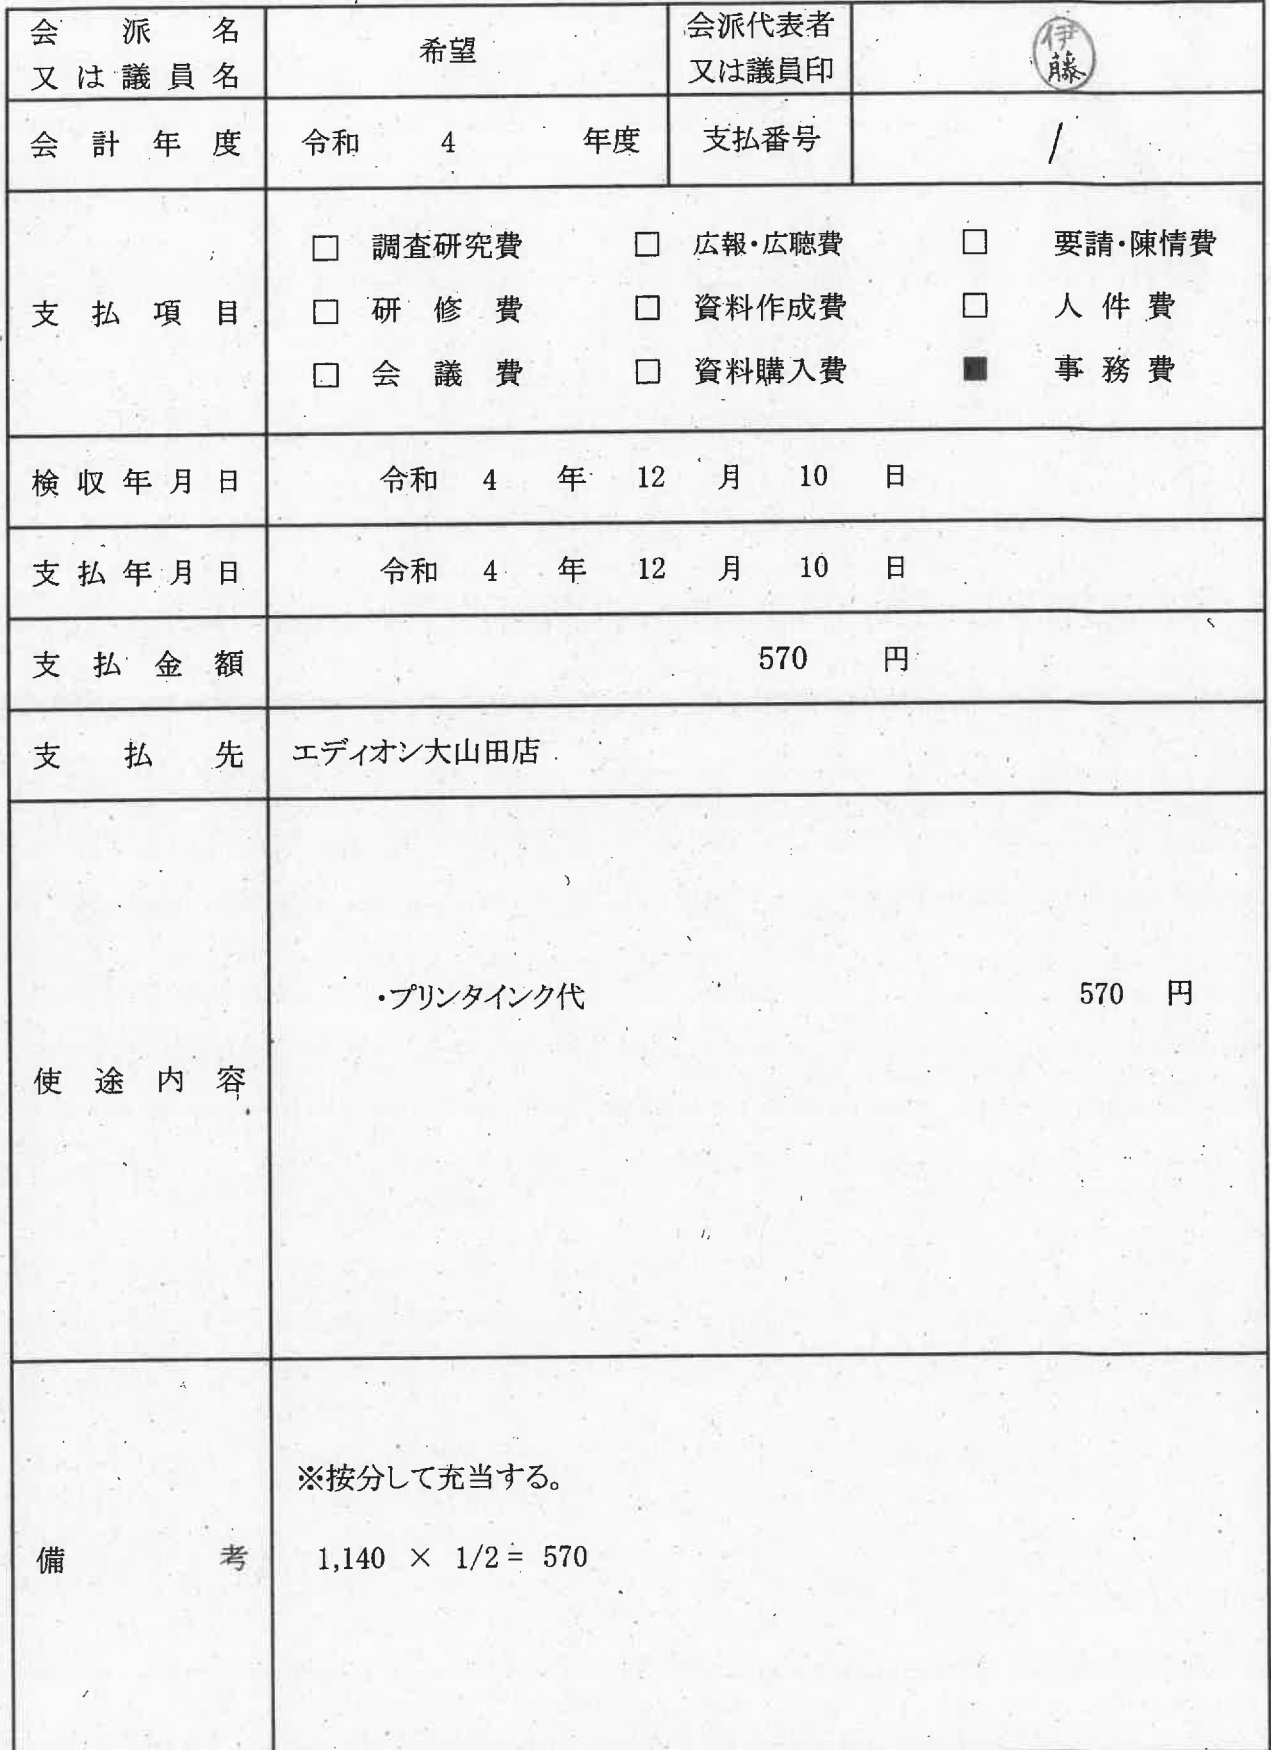 会派名
又は議員名
希望
会派代表者
又は議員印
伊藤
会計年度
令和 4 年度
支払番号
/
支払項目
□ 調査研究費 □ 広報・広聴費 □ 要請・陳情費
□ 研修費 □ 資料作成費 □ 人件費
□ 会議費 □ 資料購入費 ■ 事務費
検収年月日
令和 4 年 12 月 10 日
支払年月日
令和 4 年 12 月 10 日
支払金額
570 円
支払先
エディオン大山田店
使途内容
・プリンタインク代 570 円
備考
※按分して充当する。
1,140 × 1/2 = 570